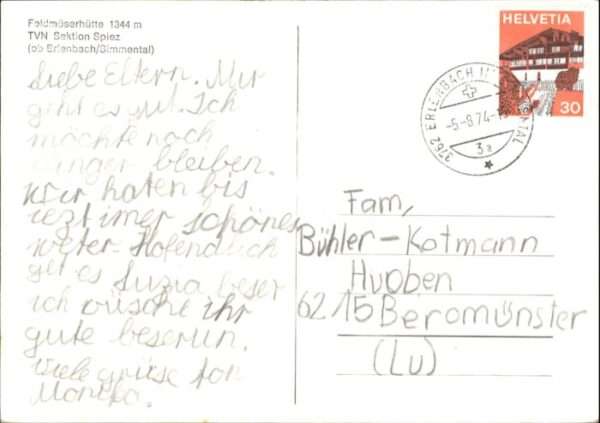 Feldmöserhütte 1344 m
TVN Sektion Spiez
(ob Erlenbach/Simmental)
Liebe Eltern. Mir
geht es gut. Ich
möchte noch
linger bleiben.
Wir haten bis
iezt imer schönes
weter. Hofendlich
get es Suzia beser
ich wüsche ihr
gute beserun.
Viele grüse fon
Monika.
HELVETIA
30
3762 ERLENBACH
-5-8.74-
3a
Fam,
Bühler-Kotmann
Huoben
6215 Beromünster
(Lu)